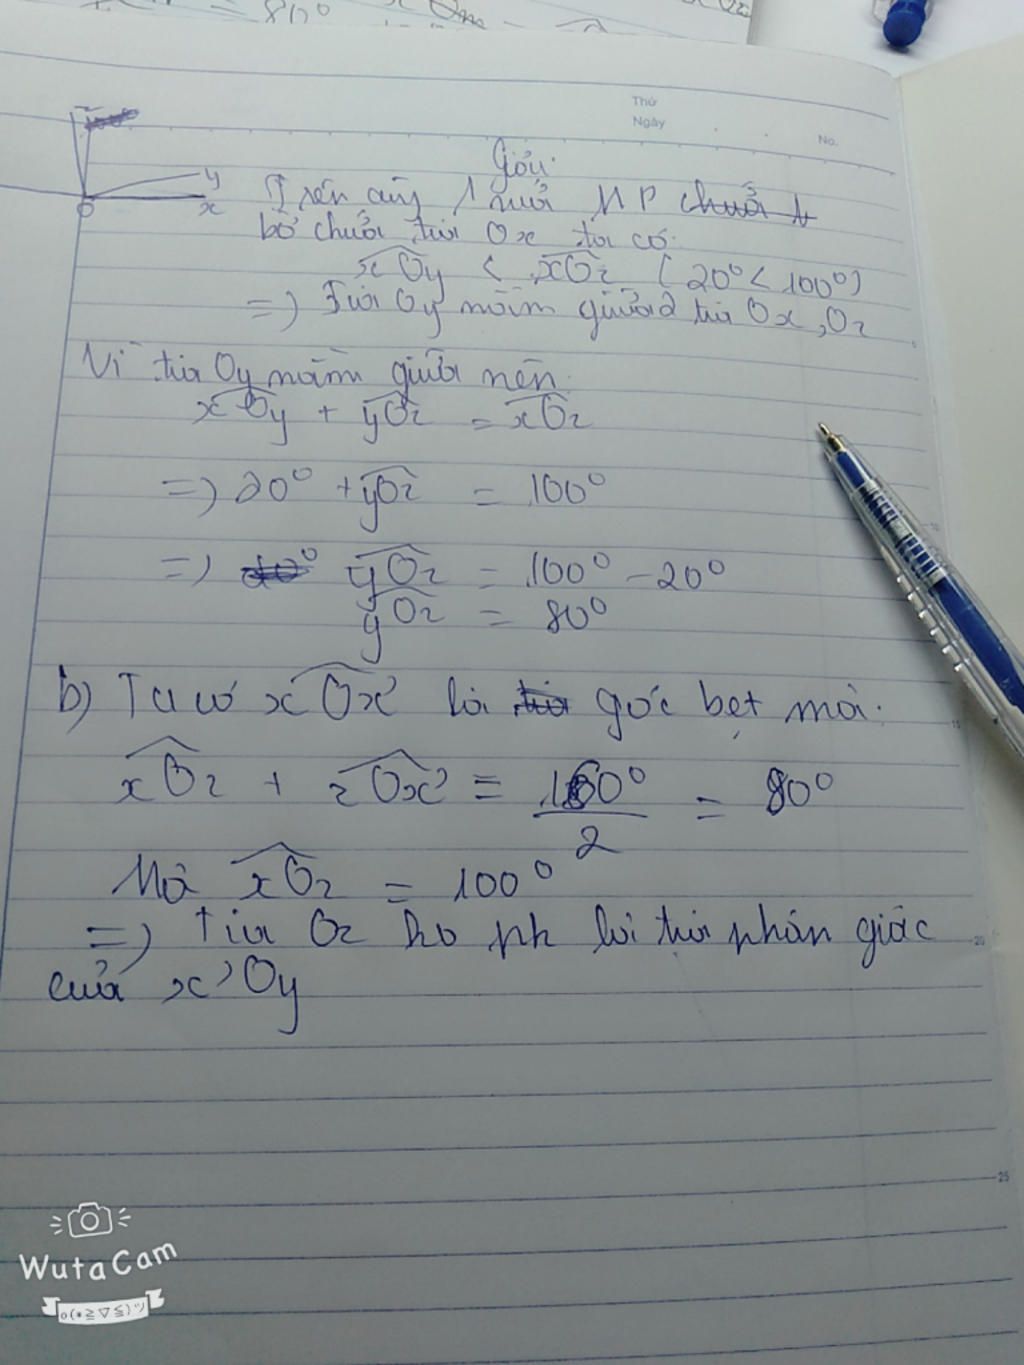 80°
Thứ
Ngày
No.
Giải
y
x
O
Trên cùng 1 nửa MP
bờ chứa tia Ox ta có:
xOy < xOz (20° < 100°)
=> Tia Oy nằm giữa 2 tia Ox, Oz
Vì tia Oy nằm giữa nên
xOy + yOz = xOz
=> 20° + yOz = 100°
=> yOz = 100° - 20°
yOz = 80°
b) Ta có xOx' là góc bẹt mà:
xOz + zOx' = 160°/2 = 80°
Mà xOz = 100°
=> Tia Oz ko ph là tia phân giác
của x'Oy
25
WutaCam
o(*≧▽≦)ツ